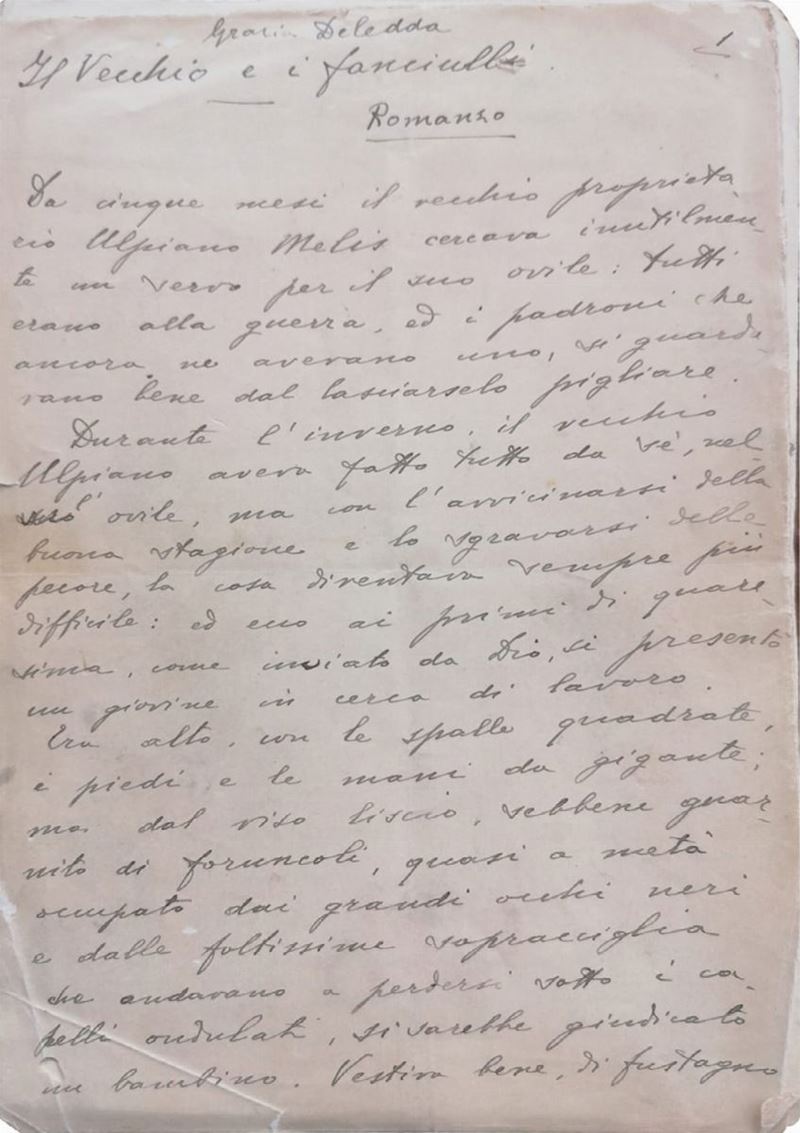 Grazia Deledda
1
Il Vecchio e i fanciulli.
Romanzo
Da cinque mesi il vecchio proprieta
rio Ulpiano Melis cercava inutilmen-
te un servo per il suo ovile: tutti
erano alla guerra, ed i padroni che
ancora ne avevano uno, si guarda-
vano bene dal lasciarselo pigliare.
Durante l'inverno, il vecchio
Ulpiano aveva fatto tutto da sè, nel-
l'ovile, ma con l'avvicinarsi della
buona stagione e lo sgravarsi delle
pecore, la cosa diventava sempre più
difficile: ed ecco ai primi di quare-
sima, come inviato da Dio, si presentò
un giovine in cerca di lavoro.
Era alto, con le spalle quadrate,
i piedi e le mani da gigante;
ma dal viso liscio, sebbene guar-
nito di foruncoli, quasi a metà
occupato dai grandi occhi neri
e dalle foltissime sopracciglia
che andavano a perdersi sotto i ca-
pelli ondulati, si sarebbe giudicato
un bambino. Vestiva bene, di fustagno